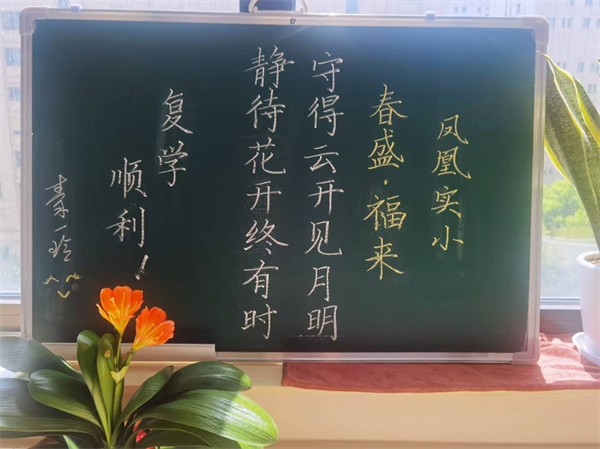 凤凰实小
春盛·福来
守得云开见月明
静待花开终有时
复学
顺利！